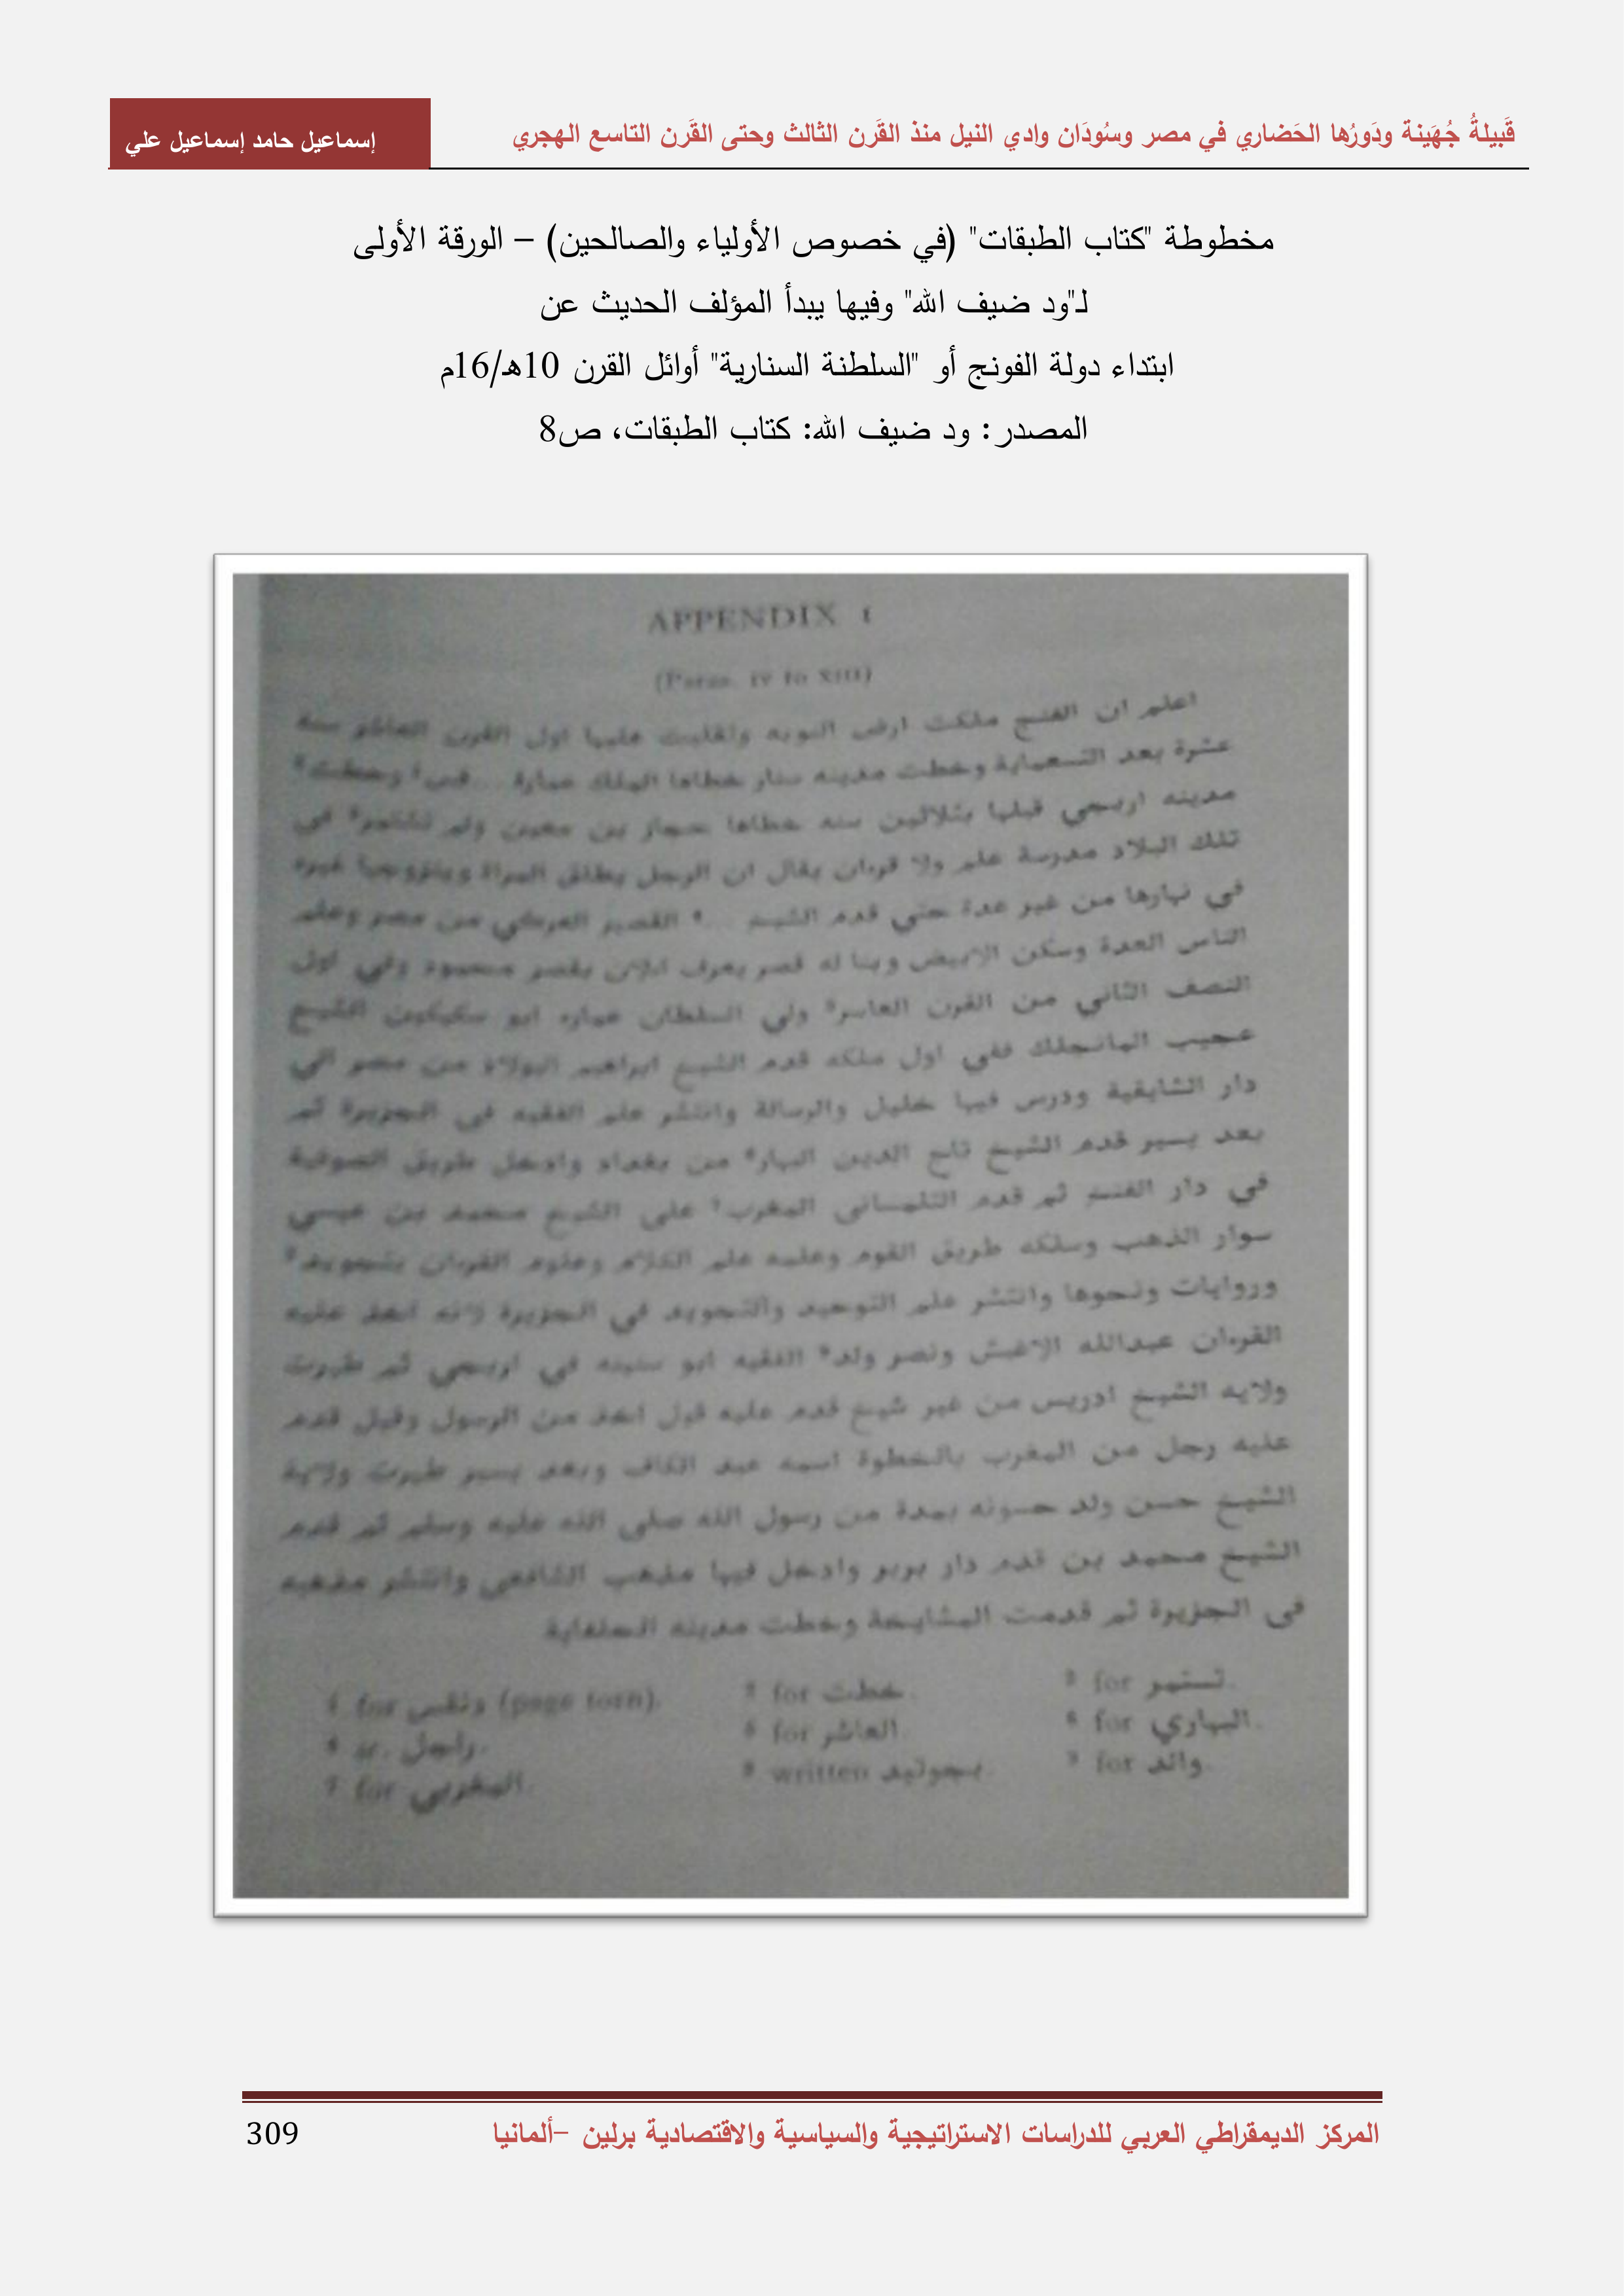 قَبيلةُ جُهَينة ودَورُها الحَضاري في مصر وسُودَان وادي النيل منذ القَرن الثالث وحتى القَرن التاسع الهجري
إسماعيل حامد إسماعيل علي
مخطوطة "كتاب الطبقات" (في خصوص الأولياء والصالحين) – الورقة الأولى
لـ"ود ضيف الله" وفيها يبدأ المؤلف الحديث عن
ابتداء دولة الفونج أو "السلطنة السنارية" أوائل القرن 10هـ/16م
المصدر: ود ضيف الله: كتاب الطبقات، ص8
APPENDIX I
(Paras. IV to XIII)
اعلم ان الفنج ملكت ارض النوبه وتغلبت عليها اول القرن العاشر سنة
عشرة بعد التسعماية وخطت مدينه سنار خطاها الملك عمارة
مدينه اربجي قبلها بثلاثين سنه خطاها حجاز بن معين ولم في
تلك البلاد مدرسة علم ولا قرءان يقال ان الرجل يطلق المراة ويتزوجها غيره
في نهارها من غير عدة حتي قدم الشيخ ... القصير العركي من مصر وعلم
الناس العدة وسكن الابيض وبنا له قصر يعرف الان بقصر محمود وفي اول
النصف الثاني من القرن العاسر ولي السلطان عماره ابو سكيكين الشيخ
عجيب المانجلك ففي اول ملكه قدم الشيخ ابراهيم البولاد من مصر الي
دار الشايقية ودرس فيها خليل والرسالة وانتشر علم الفقيه في الجزيرة ثم
بعد يسير قدم الشيخ تاج الدين البهار من بغداد وادخل طريق الصوفية
في دار الفنج ثم قدم التلمسانى المغرب على الشيخ محمد بن عيسي
سوار الذهب وسلكه طريق القوم وعلمه علم الكلام وعلوم القرءان
وروايات ونحوها وانتشر علم التوحيد والتجويد في الجزيرة لانه اخذ عليه
القرءان عبدالله الاغبش ونصر ولد الفقيه ابو سنينه في اربجي ثم ظهرت
ولايه الشيخ ادريس من غير شيخ قدم عليه قيل اخذ من الرسول وقيل قدم
عليه رجل من المغرب بالخطوة اسمه عبد الكاف وبعد يسير ظهرت ولاية
الشيخ حسن ولد حسونه بمدة من رسول الله صلى الله عليه وسلم ثم قدم
الشيخ محمد بن قدم دار بربر وادخل فيها مذهب الشافعي وانتشر مذهبه
فى الجزيرة ثم قدمت المشايخة وخطت مدينه الحلفاية
1 for (page torn).
2 for خطت.
3 for تستمر.
4 sc. راجل.
5 for العاشر.
6 for البهاري.
7 for المغربي.
8 written بجوتيد.
9 for والد.
المركز الديمقراطي العربي للدراسات الاستراتيجية والسياسية والاقتصادية برلين –ألمانيا
309